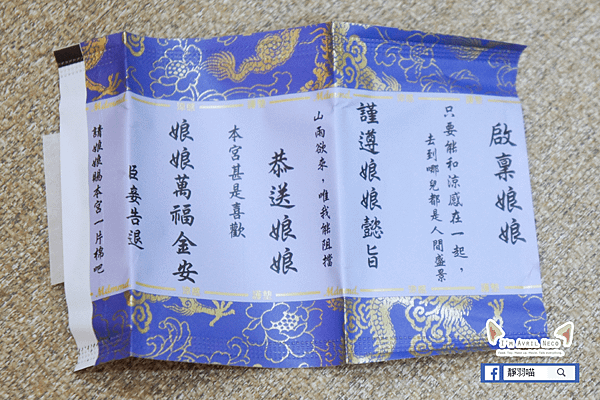 啟稟娘娘
只要能和涼感在一起，
去到哪兒都是人間盛景
謹遵娘娘懿旨
山雨欲來，唯我能阻擋
恭送娘娘
本宮甚是喜歡
娘娘萬福金安
臣妾告退
請娘娘賜本宮一片棉吧
I'm Avril Neco
靜羽喵